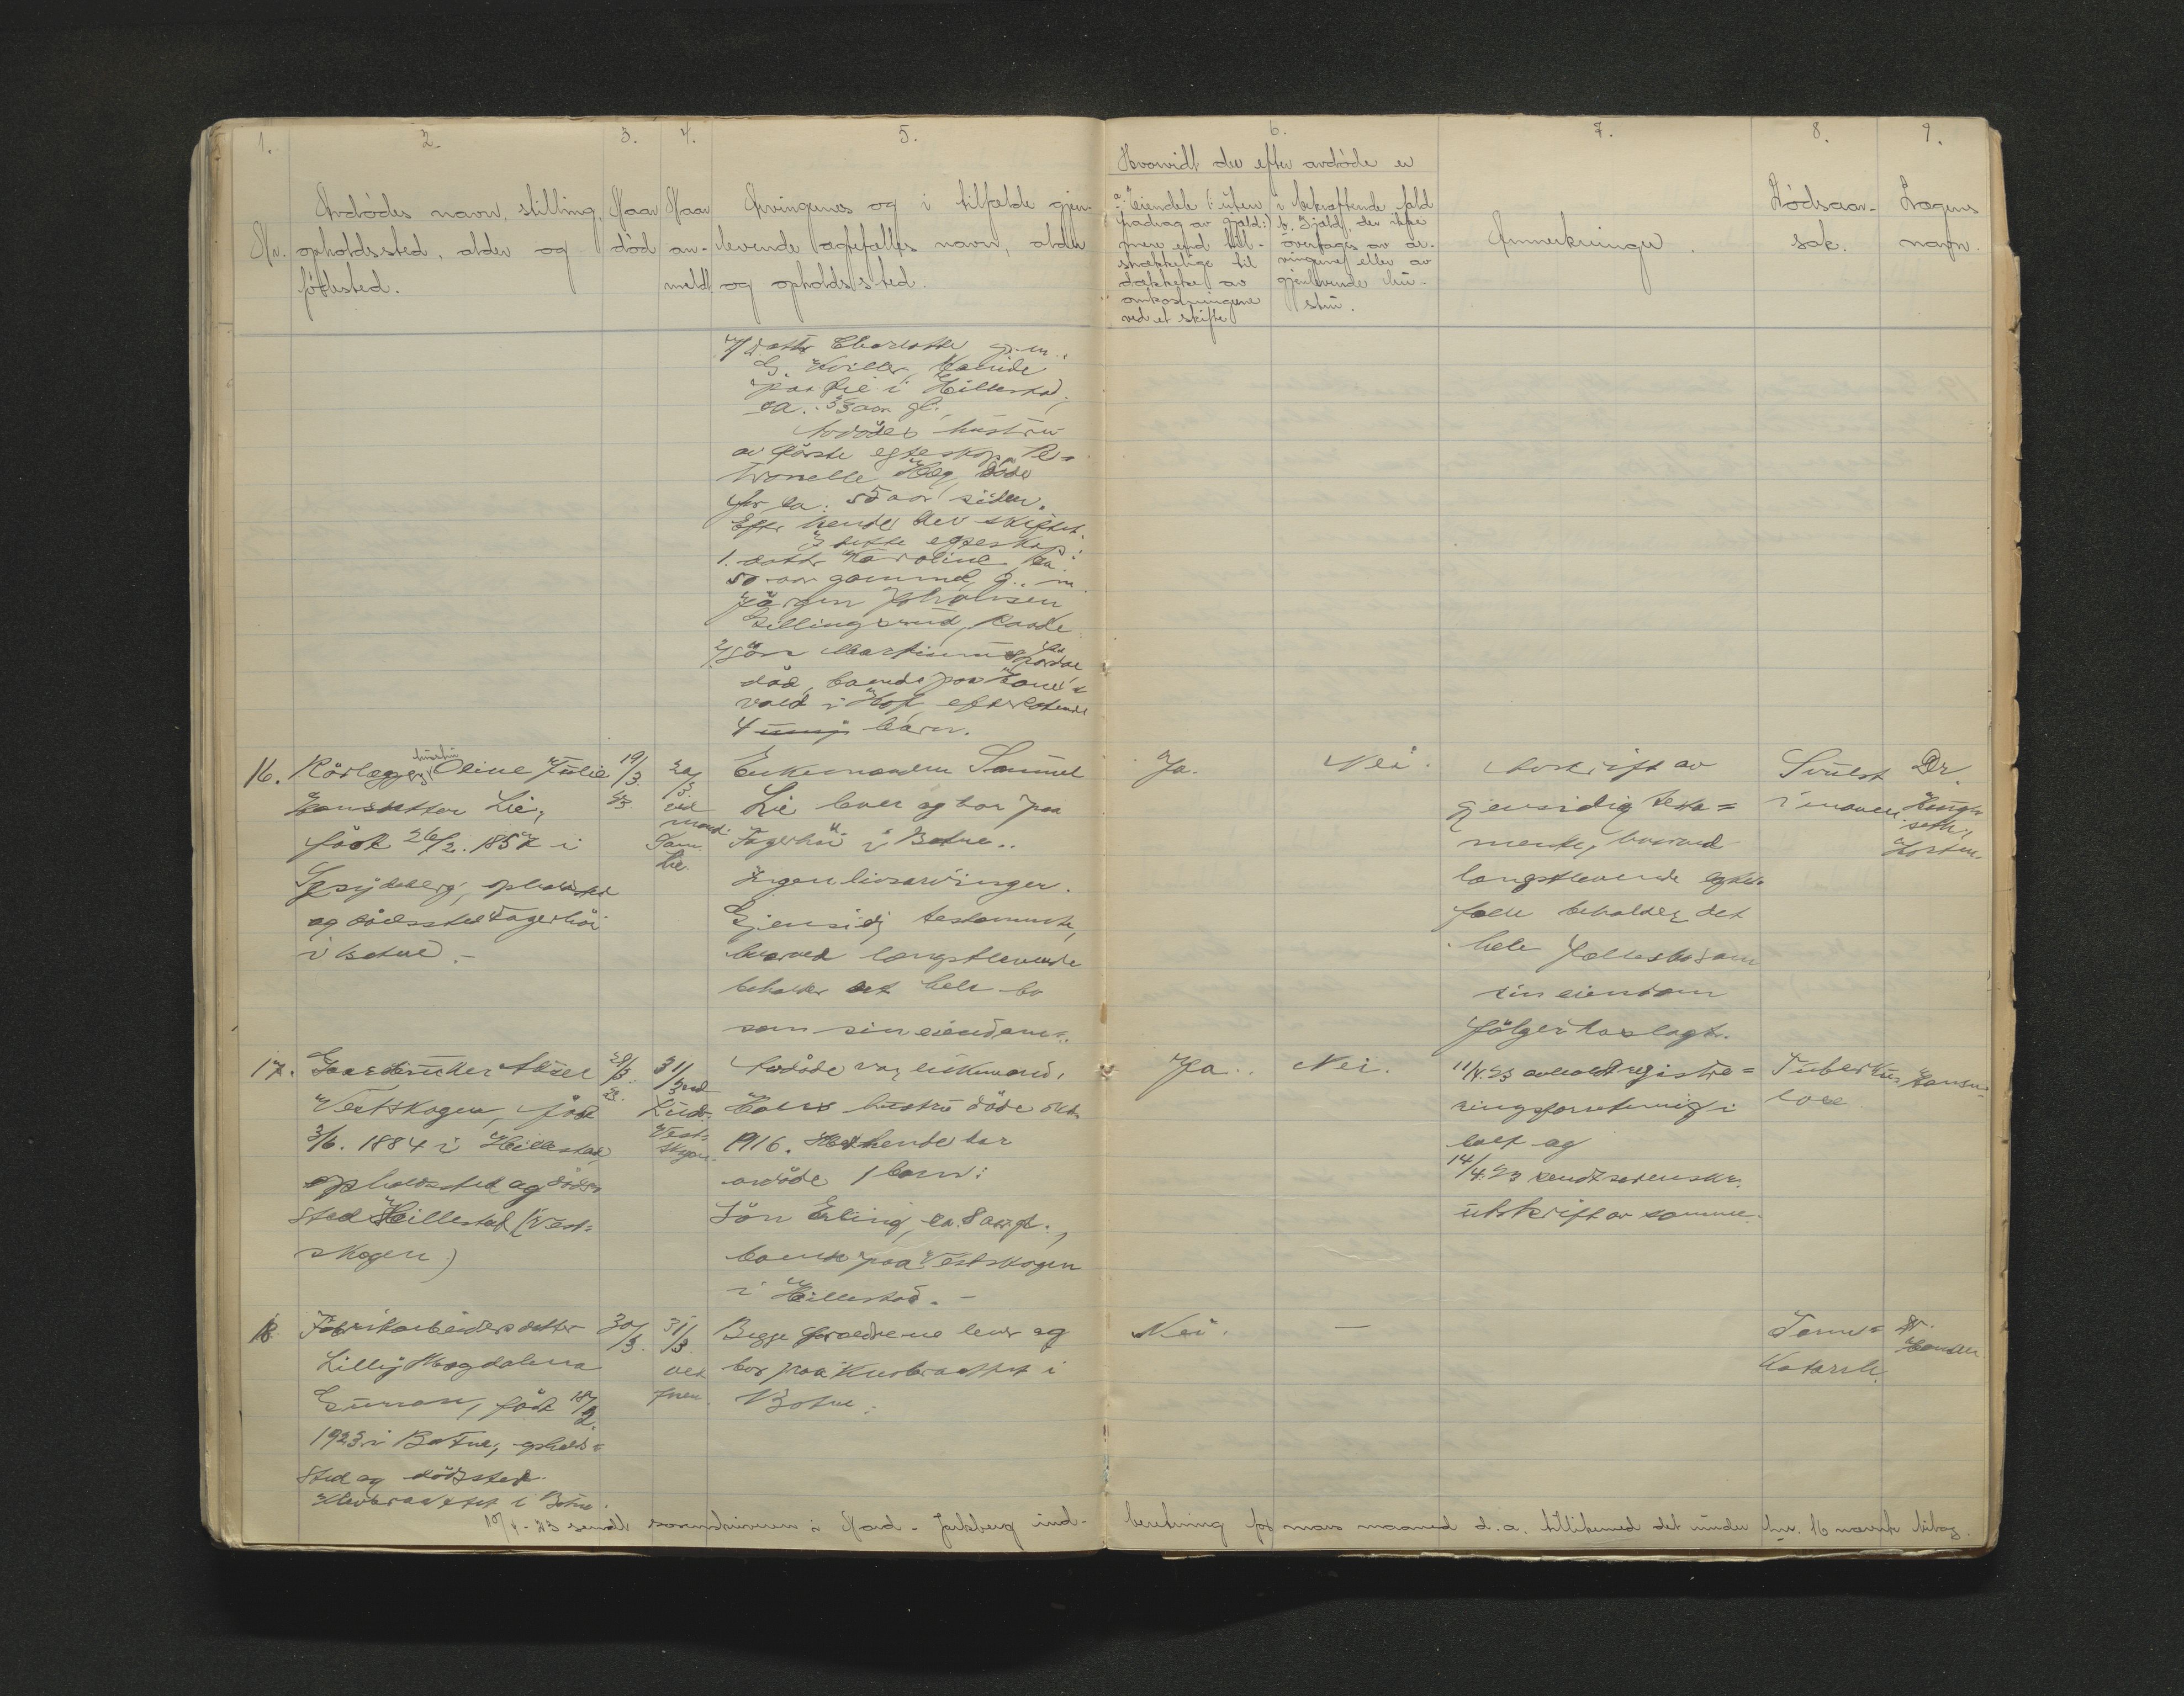 1. 2. 3. 4. 5. 6. 7. 8. 9.
Nr.
Avdødes navn, stilling,
opholdssted, alder og
fødested.
Naar
død
Naar
an-
meldt
Arvingenes og i tilfælde gjen-
levende ægtefælles navn, alder
og opholdssted.
Hvorvidt der efter avdøde er
a. Eiendele (: uten
fradrag av gjæld:)
mere end til-
strækkelige til
dækkelse av
omkostningene
ved et skifte
i bekræftende fald
b. Gjæld, der ikke
overtages av ar-
vingene eller av
gjenlevende hu-
stru.
Anmerkninger.
Dødsaar-
sak.
Lægens
navn.
datter Charlotte
paa Lie i Hillestad,
ca. 33 aar gl.
Avdødes hustru
av første egteskap Pe=
tronelle døde
for ca. 50 aar siden.
Efter hende blev skiftet.
I dette egteskap:
1. datter Karoline, ca.
50 aar gammel, g. m.
Jørgen Johansen
Gillingsrud, Raade
2/ Søn Martinius
død, boende paa
i Hof, efterlatende
4 barn.
16.
Rørlægger hustru Oline Julie
Hansdatter Lie,
født 26/2. 1857 i
Spydeberg, opholdssted
og dødssted Fagerhøi
i Botne.-
19/3.
23.
20/3.
ved
mand.
Sam.
Lie.
Enkemanden Samuel
Lie lever og bor paa
Fagerhøi i Botne..
Ingen livsarvinger.
Gjensidig testamente,
hvorved længstlevende
beholder det hele bo
som sin eiendom.
Ja.
Nei.
Avskrift av
gjensidig testa=
mente, hvorved
længstlevende egte=
fælle beholder det
hele fællesbo som
sin eiendom
følger vedlagt.
Svulst
i maven
Dr.
Horten.
17.
Gaardbruker
Vestskogen, født
3/6. 1884 i Hillestad,
opholdssted og døds=
sted Hillestad (Vest=
skogen)
28/3.
23.
31/3 ved
Ludv.
Vest=
skogen.
Avdøde var enkemand,
Hans hustru døde okt.
1916. Med hende har
avdøde 1 barn:
Søn Erling, ca. 8 aar gl.,
boende paa Vestskogen
i Hillestad. -
Ja..
Nei.
11/4. 23 avholdt registre=
ringsforretning i
boet og
14/4. 23 sendt sorenskr.
utskrift av samme.
Tuberku=
lose
18
Fabrikarbeiders datter
Lilly Magdalena
Gunnan, født 18/2.
1923 i Botne, opholds=
sted og dødssted
i Botne.
30/3.
31/3.
ved
Begge forældrene lever og
bor paa i
Botne.
Nei.
—
Tarm=
katarrh.
Dr.
10/4-23 sendt sorenskriveren i Nord-Jarlsberg ind-
beretning for mars maaned d.a. tillikemed det under Nr. 16 nævnte bilag.